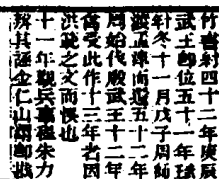 竹書紀四十二年庚辰
武王卽位五十一年
冬十一月戊子周師
渡孟津而還五十二年
周始伐殷武王十二年
受此作十三年者因
洪範之文而悞也
十一年觀兵事程朱力
辨其誣金仁山鄒